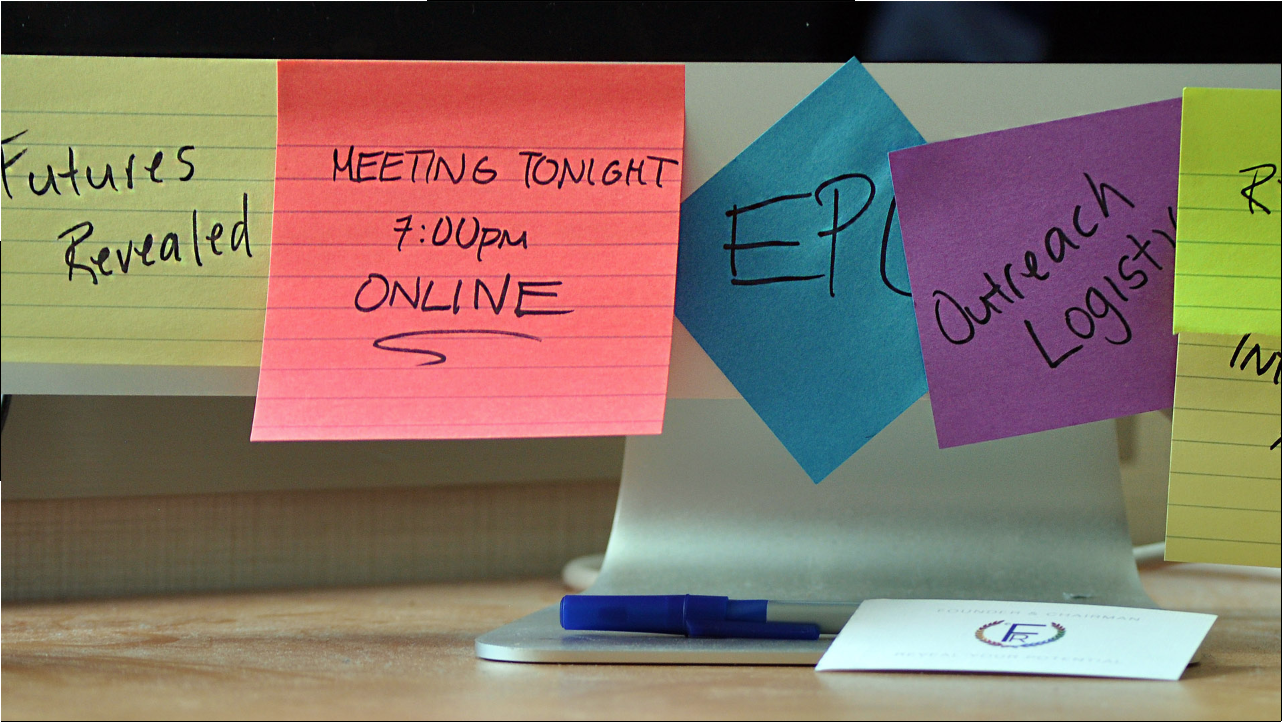 Futures
Revealed
MEETING TONIGHT
7:00pm
ONLINE
Outreach
FOUNDER & CHAIRMAN
FR
REVEAL YOUR POTENTIAL